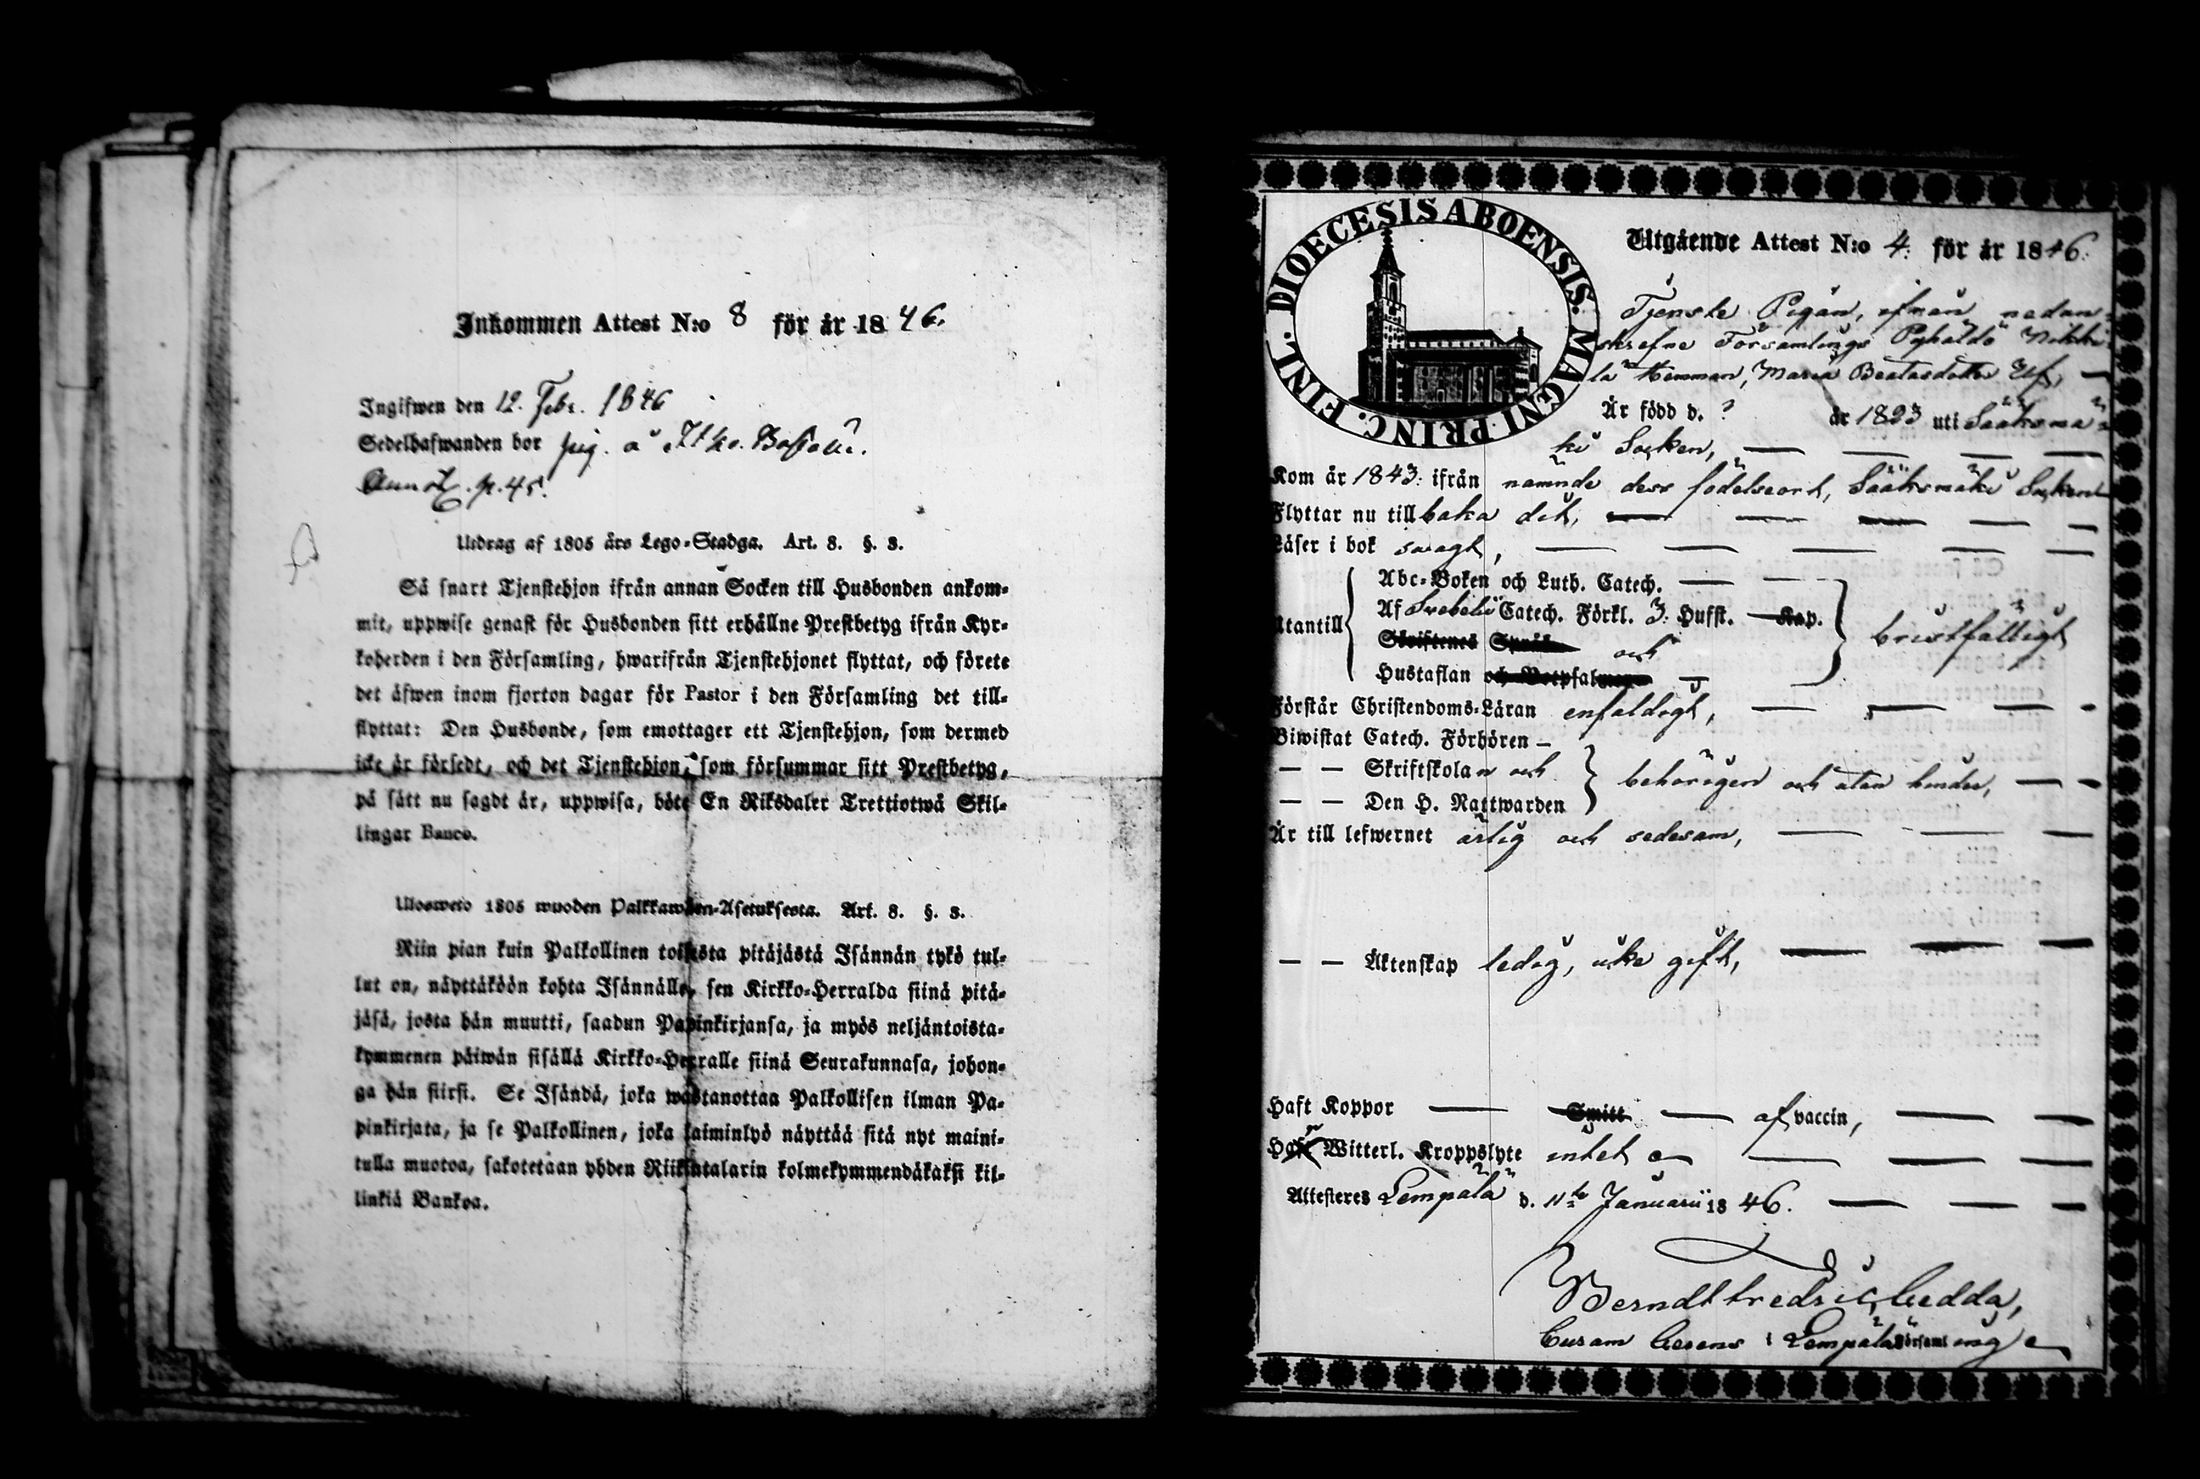 Inkommen Attest N:o 8 för år 1846.
Ingifwen den 12. Febr. 1846
Sedelhafwanden bor pig. å
Annot. p. 45.
Utdrag af 1805 års Lego-Stadga. Art. 8. §. 3.
Så snart Tjenstehjon ifrån annan Socken till Husbonden ankom-
mit, uppwise genast för Husbonden sitt erhållne Prestbetyg ifrån Kyr-
koherden i den Församling, hwarifrån Tjenstehjonet flyttat, och förete
det äfwen inom fjorton dagar för Pastor i den Församling det till-
flyttat: Den Husbonde, som emottager ett Tjenstehjon, som dermed
icke är försedt, och det Tjenstehjon, som försummar sitt Prestbetyg,
på sätt nu sagdt är, uppwisa, böte En Riksdaler Trettiotwå Skil-
lingar Banco.
Ulosweto 1805 wuoden Palkkawäen-Asetuksesta. Art. 8. §. 3.
Niin pian kuin Palkollinen toisesta pitäjästä Isännän tykö tul-
lut on, näyttäköön kohta Isännälle, sen Kirkko-Herralda siinä pitä-
jäsä, josta hän muutti, saadun Papinkirjansa, ja myös neljäntoista-
kymmenen päiwän sisällä Kirkko-Herralle siinä Seurakunnasa, johon-
ga hän siirsi. Se Isändä, joka wastanottaa Palkollisen ilman Pa-
pinkirjata, ja se Palkollinen, joka laiminlyö näyttää sitä nyt maini-
tulla muotoa, sakotetaan yhden Riiksintalarin kolmekymmendäkaksi kil-
linkiä Bankoa.
DIOECESIS ABOENSIS. MAGNI PRINC. FINL.
Utgående Attest N:o 4. för år 1846.
Tjenste Pigan, ifrån nedan-
skrefne Församlings Pyhäldö Nikki-
lä Hemman, Maria Beatasdotter
Är född d. ? år 1823 uti Sääksmä-
ki Socken,
Kom år 1843. ifrån nämnde dess födelseort, Sääksmäki Socken
Flyttar nu tillbaka dit,
Läser i bok svagt,
Utantill
Abc-Boken och Luth. Catech.
Af Svebelii Catech. Förkl. 3. Hufst. Kap.
Skriftenes Språk och
Hustaflan och Botpsalmerne
bristfälligt
Förstår Christendoms-Läran enfaldigt,
Biwistat Catech. Förhören
— — Skriftskolan och
— — Den H. Nattwarden
behörigen och utan hinder,
Är till lefwernet ärlig och sedesam,
— — Äktenskap ledig, icke gift,
Haft Koppor Smitt af vaccin,
Witterl. Kroppslyte intet
Attesteres Lempälä d. 11te Januarii 1846.
Berndt Fredric Gedda,
Curam Gerens i Lempälä Församling